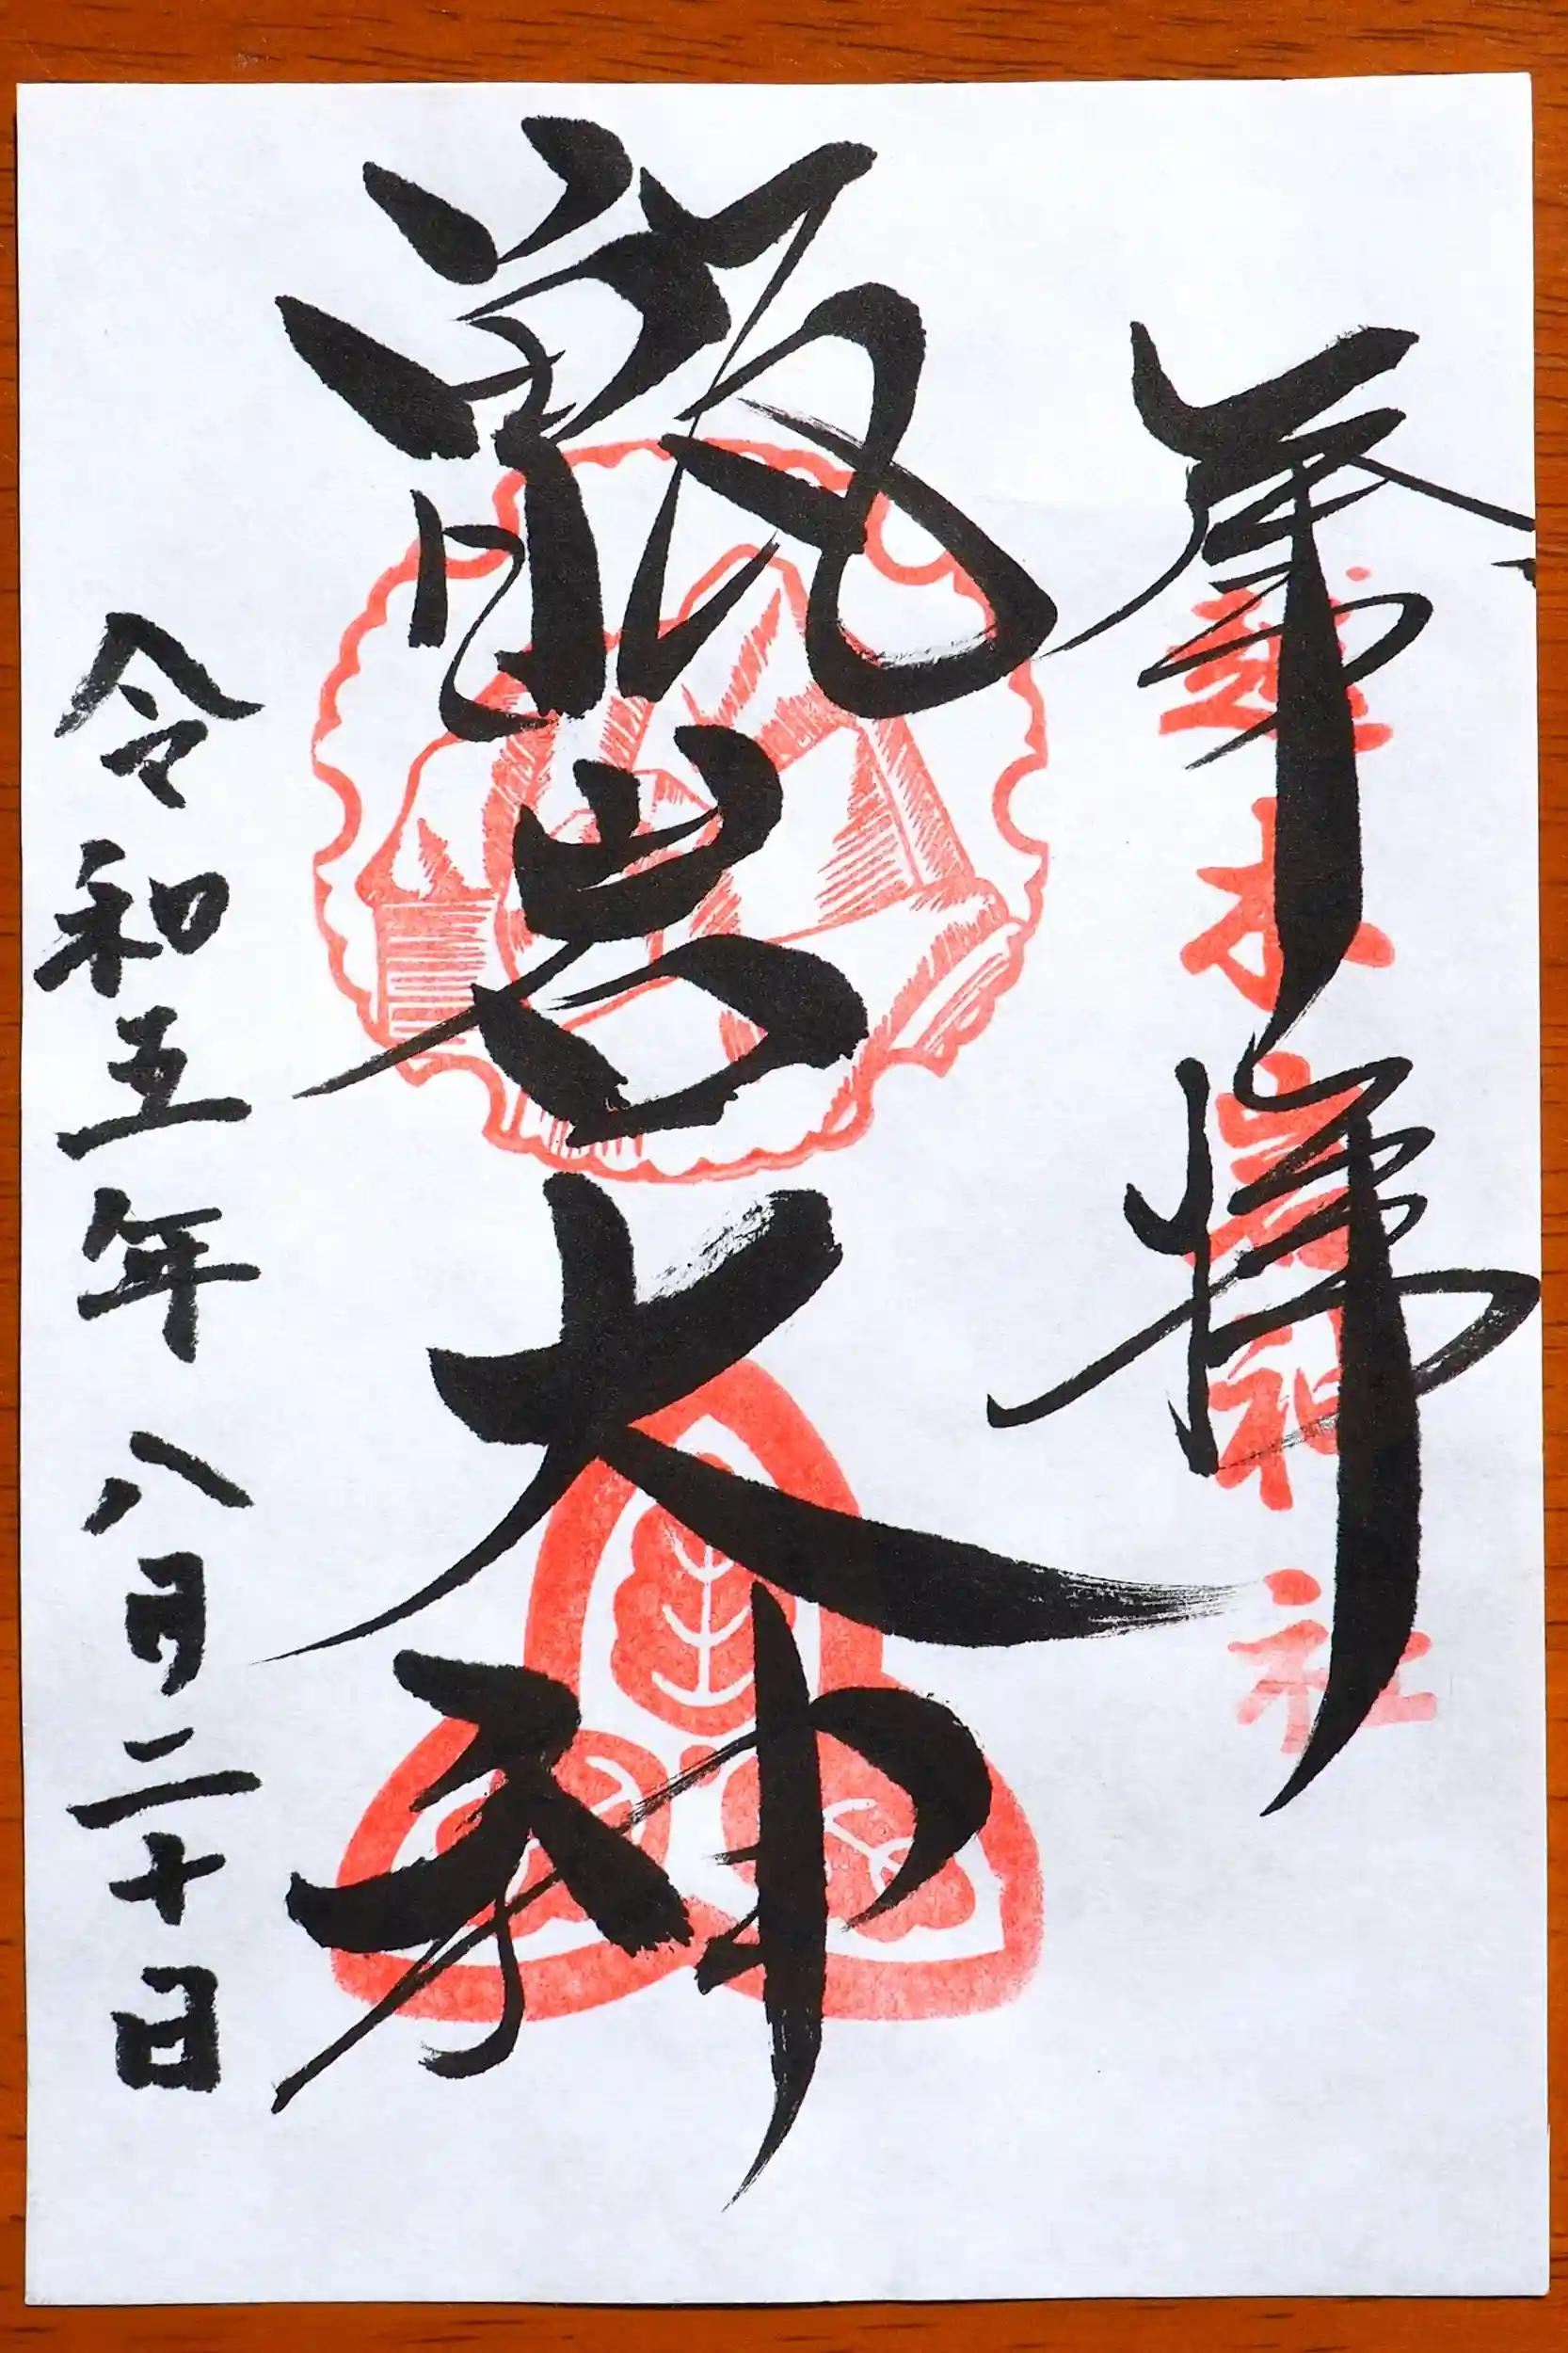 奉拝
越木岩神社
甑岩大神
令和五年八月二十日